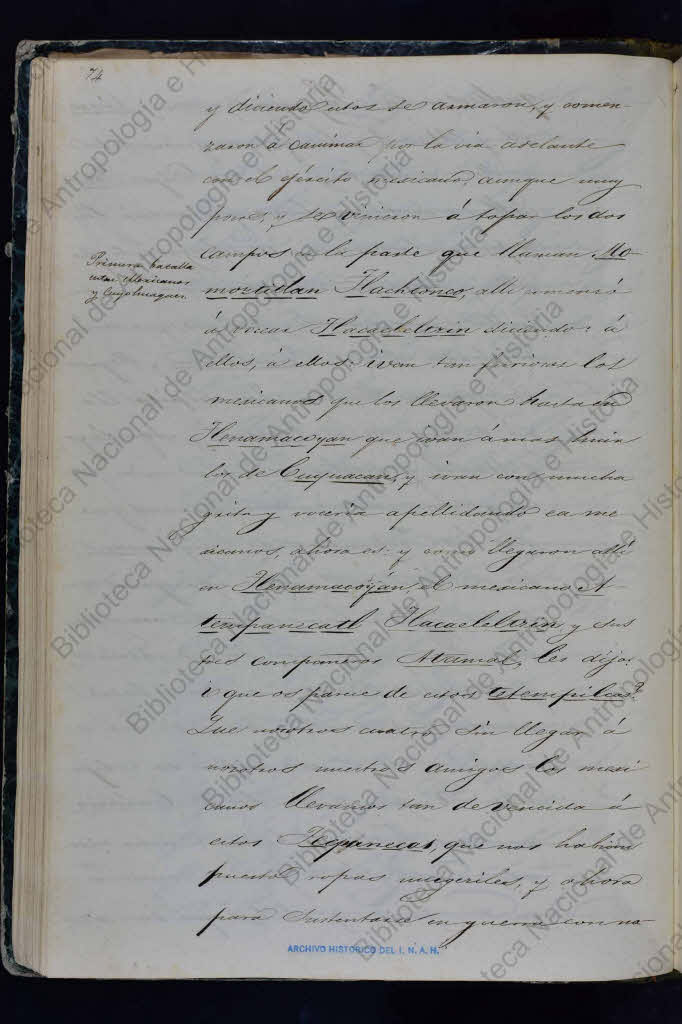 74
y diciendo estos se armaron, y comen-
zaron a caminar por la via adelante
con el ejército mexicano, aunque muy
pocos, y se vinieron á topar los dos
campos en la parte que llaman Mo-
moztitlan Tlachtonco, alli comenzó
á vocear Tlacaeleltzin diciendo: á
ellos, á ellos: ivan tan furiosos los
mexicanos que los llevaron hasta en
Tlenamacoyan que ivan á mas huir
los de Cuyuacan, y ivan con mucha
grita y voceria apellidando ea me-
xicanos, ahora es: y como llegaron alli
en Tlenamacoyán, el mexicano A-
tempanecatl Tlacaeleltzin y sus
tres compañeros Atamal, les dijo:
¿que os parece de estos Atempilcas?
Que nosotros cuatro, sin llegar á
nosotros nuestros amigos los mexi-
canos llevamos tan de vencida á
estos Tecpanecas, que nos habian
puesto ropas mugeriles, y ahora
para sustentarse en guerra con no-
Primera batalla
entre Mexicanos
y Cuyohuaques.
ARCHIVO HISTORICO DEL I. N. A. H.
Biblioteca Nacional de Antropología e Historia